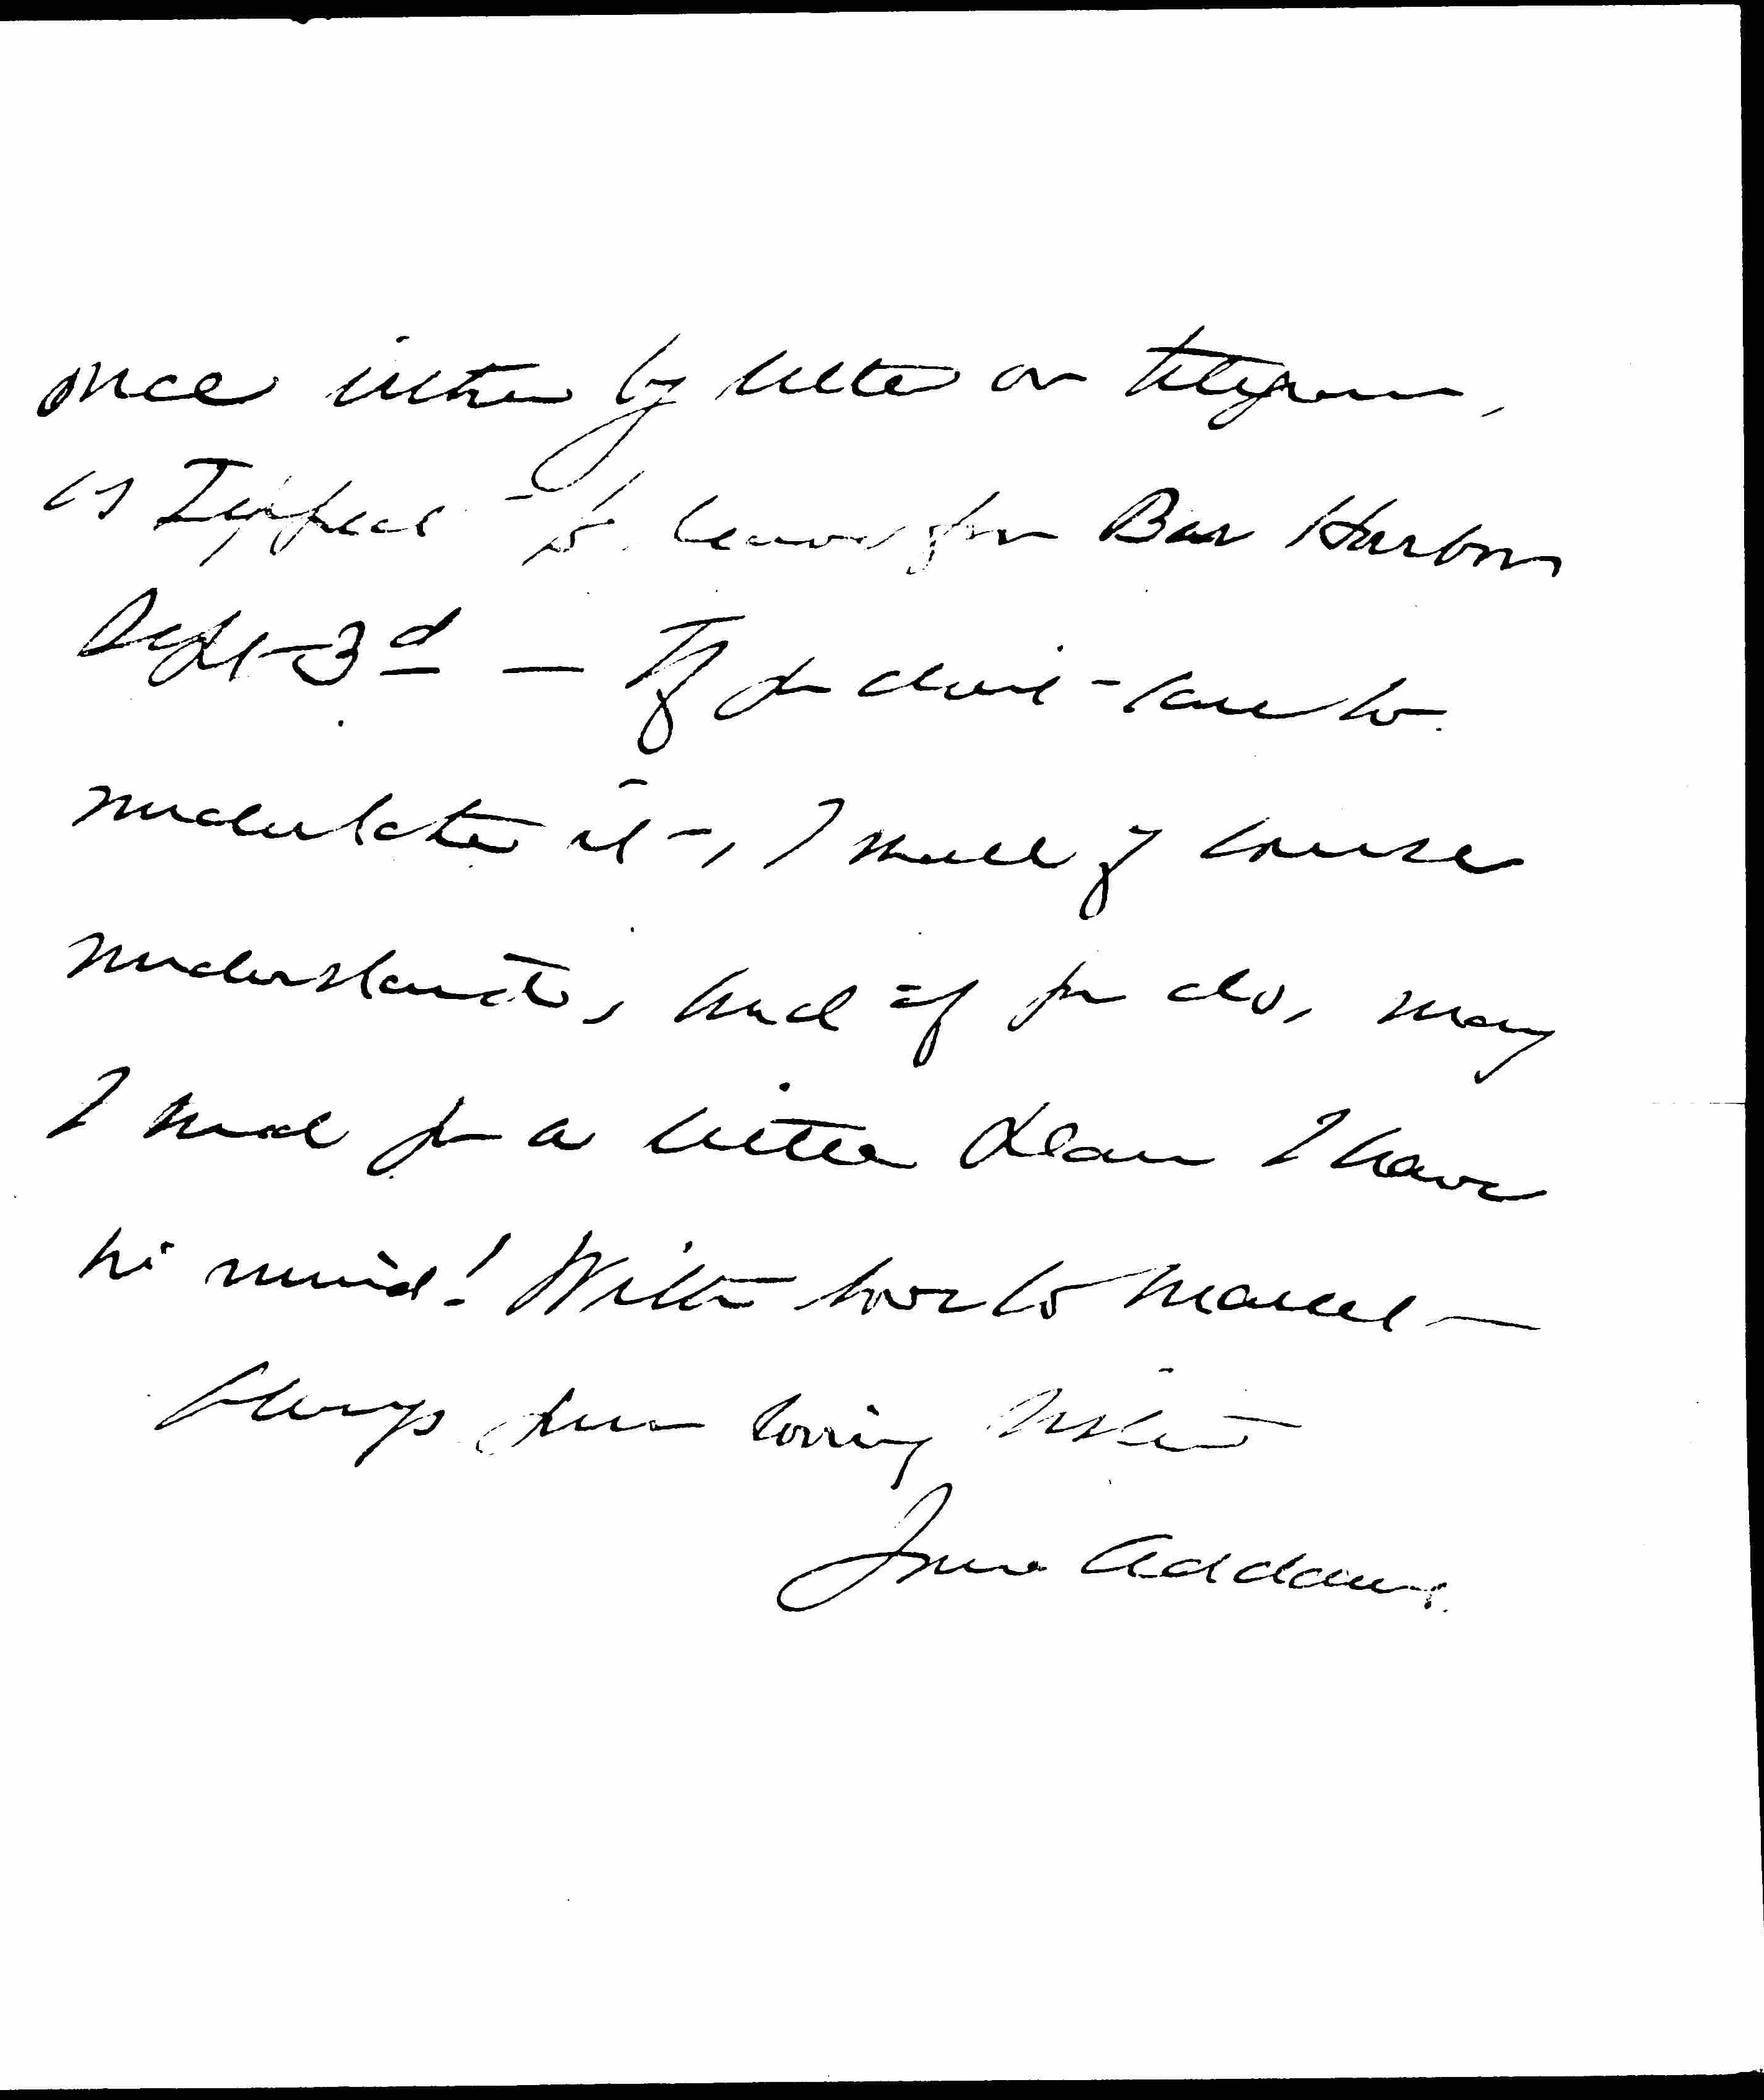 once either by letter or telegram,
as I expect to leave for Bar Harbor
Sept 3d — If you don't care to
undertake it, I shall of course
understand, and if you do, may
I send you a little plan I have
in mind! With love to Marcet —
always your loving sister
Jane Addams.